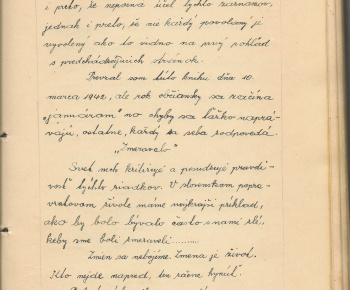 i preto, že nepozná účel týchto záznamov,
jednak i preto, že nie každý povolaný je
vyvolený ako to vidno na prvý pohľad
s predchádzajúcich stránok.
Prevzal som túto knihu dňa 10.
marca 1942, ale rok občiansky sa začína
"januárom" no chyby sa ťažko napra-
vájú, ostatne, každý za seba zodpovedá.
"Zmeravelo"
Svet nech kritizuje a posudzuje pravdi-
vosť týchto riadkov. V slovenskom popre-
vratovom živote máme najkrajší príklad,
ako by bolo bývalo často s nami zle,
keby sme boli zmeraveli.........
Zmien sa nebojíme. Zmena je život.
Kto nejde napred, ten začne hynúť.